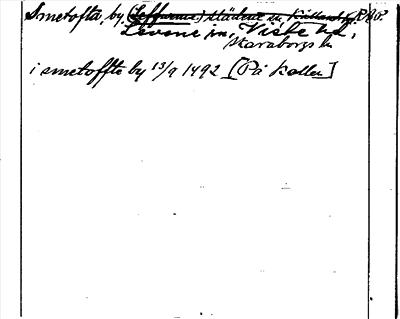 Smetofta, by, RAP.
Levene sn, Viste hd,
Skaraborgs ln
i smetoffte by 13/9 1492 [På Kallen]